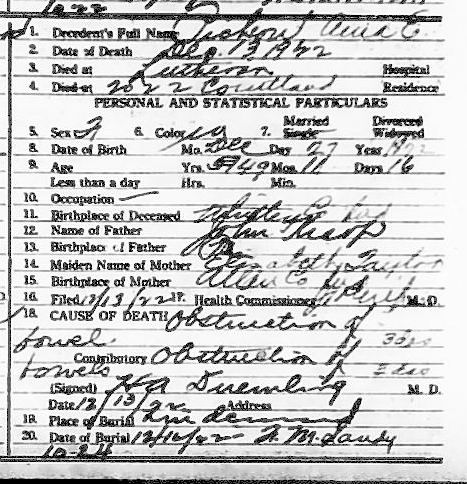 1. Decedent's Full Name Anna E.
2. Date of Death Dec. 13, 1922
3. Died at Lutheran Hospital
4. Died at 2022 Courtland Residence
PERSONAL AND STATISTICAL PARTICULARS
5. Sex F 6. Color W 7. Married Single Divorced Widowed
8. Date of Birth Mo. Dec Day 27 Year
9. Age Yrs. 49 Mos. 11 Days 16
Less than a day Hrs. Min.
10. Occupation —
11. Birthplace of Deceased Co Ind
12. Name of Father John
13. Birthplace of Father
14. Maiden Name of Mother Elizabeth Taylor
15. Birthplace of Mother Allen Co Ind
16. Filed 12/13/22 17. Health Commissioner M. D.
18. CAUSE OF DEATH Obstruction of
bowel 3 das
Contributory Obstruction of
bowels 3 das
(Signed) H A Duemling M. D.
Date 12/13/22 Address
19. Place of Burial Lindenwood
20. Date of Burial 12/16/22
10-24